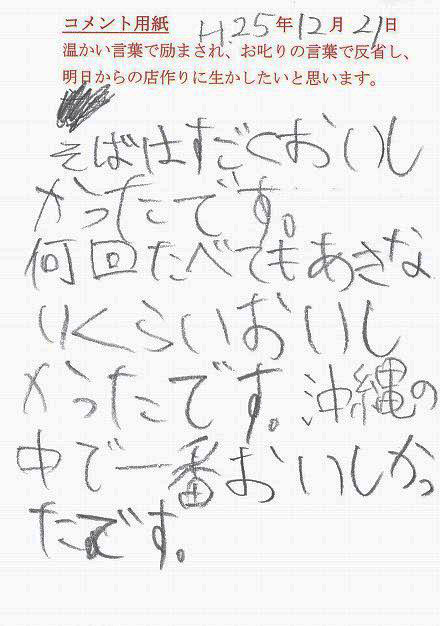 コメント用紙 H.25年12月21日
温かい言葉で励まされ、お叱りの言葉で反省し、
明日からの店作りに生かしたいと思います。
そばはすごくおいし
かったです。
何回たべてもあきな
いくらいおいし
かったです。沖縄の
中で一番おいしかっ
たです。